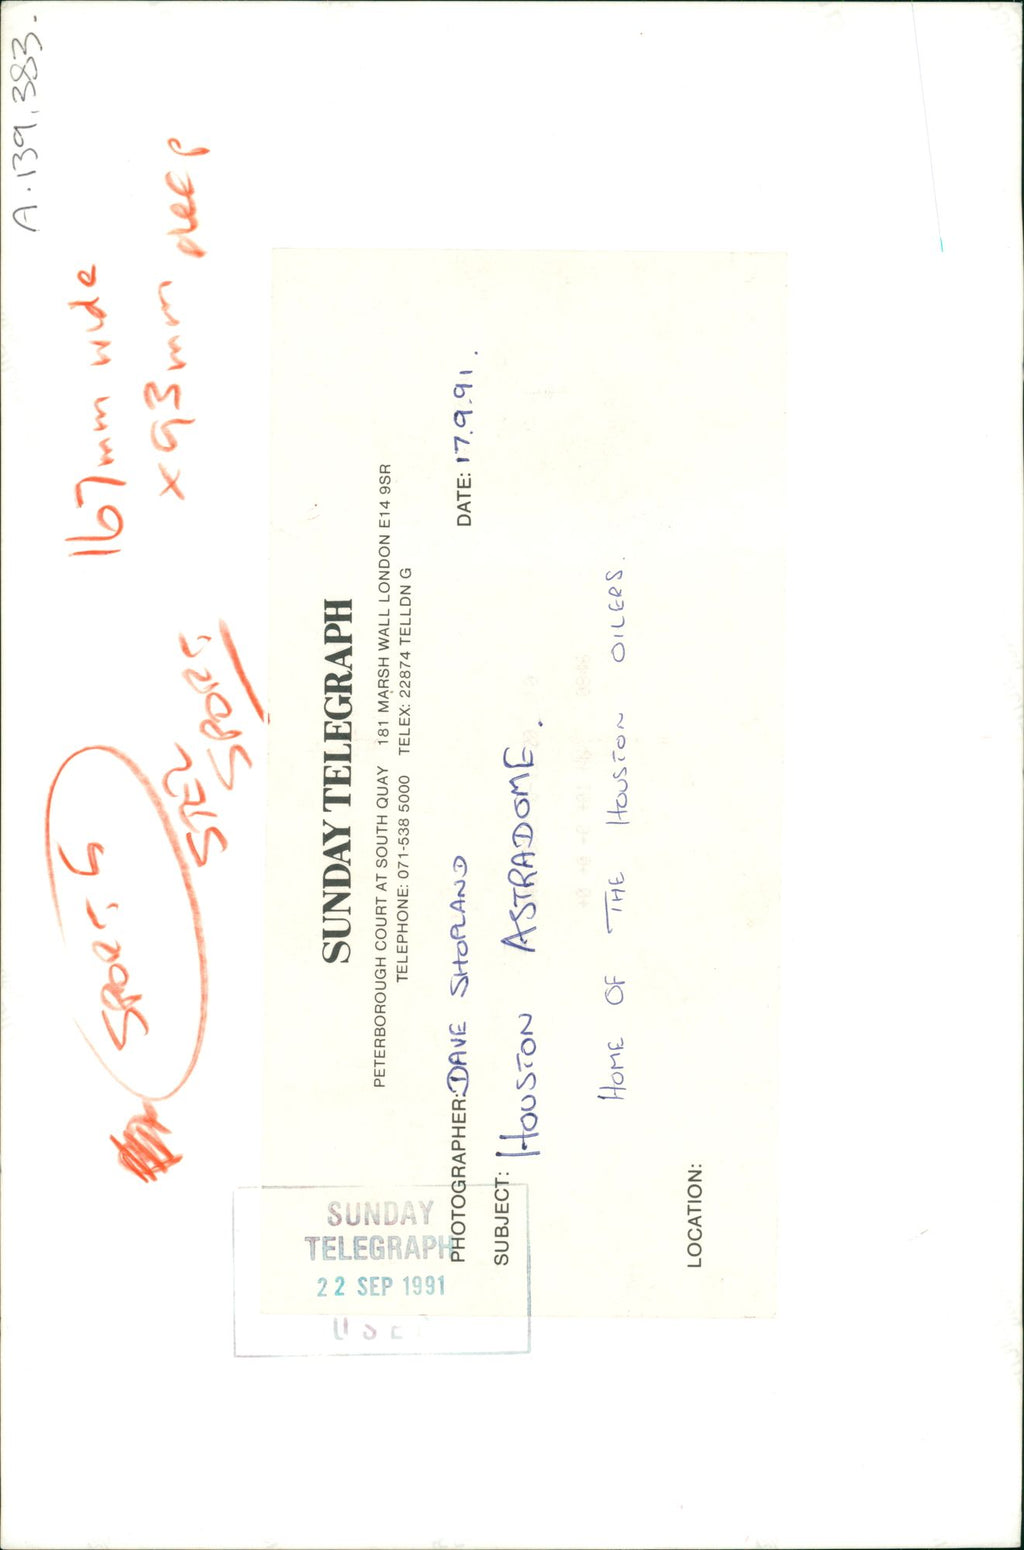 A.139,383.
167mm wide
x 93mm deep
SPORT 5
STEL
SPORT
SUNDAY TELEGRAPH
PETERBOROUGH COURT AT SOUTH QUAY 181 MARSH WALL LONDON E14 9SR
TELEPHONE: 071-538 5000 TELEX: 22874 TELLDN G
PHOTOGRAPHER: DAVE SHOPLAND
DATE: 17.9.91.
SUBJECT: HOUSTON ASTRADOME.
HOME OF THE HOUSTON OILERS.
LOCATION:
SUNDAY
TELEGRAPH
22 SEP 1991
USE